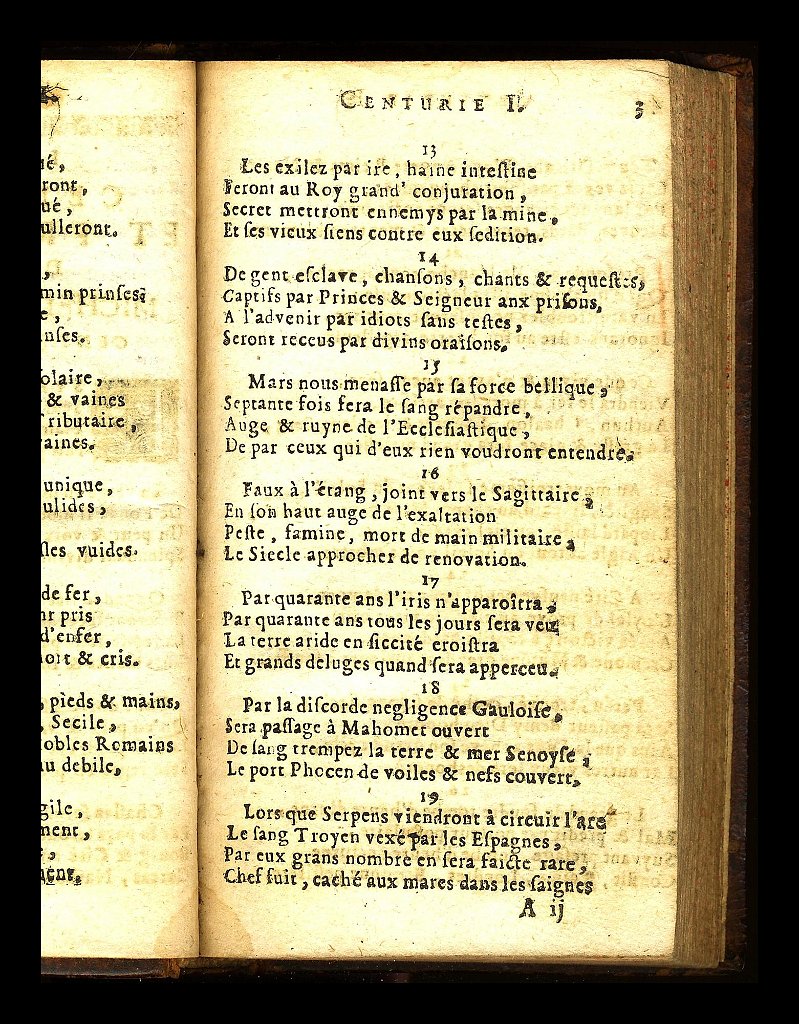 ué,
ront,
ué,
ulleront.
min prinses;
e,
nses.
olaire,
& vaines
ributaire,
aines.
unique,
ulides,
ſles vuides.
de fer,
ur pris
d'enfer,
ort & cris.
, pieds & mains,
, Secile,
obles Romains
u debile,
gile,
ment,
CENTURIE I. 3
13
Les exilez par ire, haine inteſtine
Feront au Roy grand' conjuration,
Secret mettront ennemys par la mine,
Et ſes vieux ſiens contre eux ſedition.
14
De gent eſclave, chanſons, chants & requeſtes,
Captifs par Princes & Seigneur anx priſons,
A l'advenir par idiots ſans teſtes,
Seront receus par divins oraiſons.
15
Mars nous menaſſe par ſa force bellique,
Septante fois fera le ſang répandre,
Auge & ruyne de l'Eccleſiaſtique,
De par ceux qui d'eux rien voudront entendre.
16
Faux à l'étang, joint vers le Sagittaire,
En ſon haut auge de l'exaltation
Peſte, famine, mort de main militaire,
Le Siecle approcher de renovation.
17
Par quarante ans l'iris n'apparoîtra,
Par quarante ans tous les jours ſera veu;
La terre aride en ſiccité croiſtra
Et grands deluges quand ſera apperceu.
18
Par la diſcorde negligence Gauloiſe,
Sera paſſage à Mahomet ouvert
De ſang trempez la terre & mer Senoyſe,
Le port Phocen de voiles & nefs couvert,
19
Lors que Serpens viendront à circuir l'are
Le ſang Troyen vexé par les Eſpagnes,
Par eux grans nombre en ſera faicte rare,
Chef fuit, caché aux mares dans les ſaignes
A ij